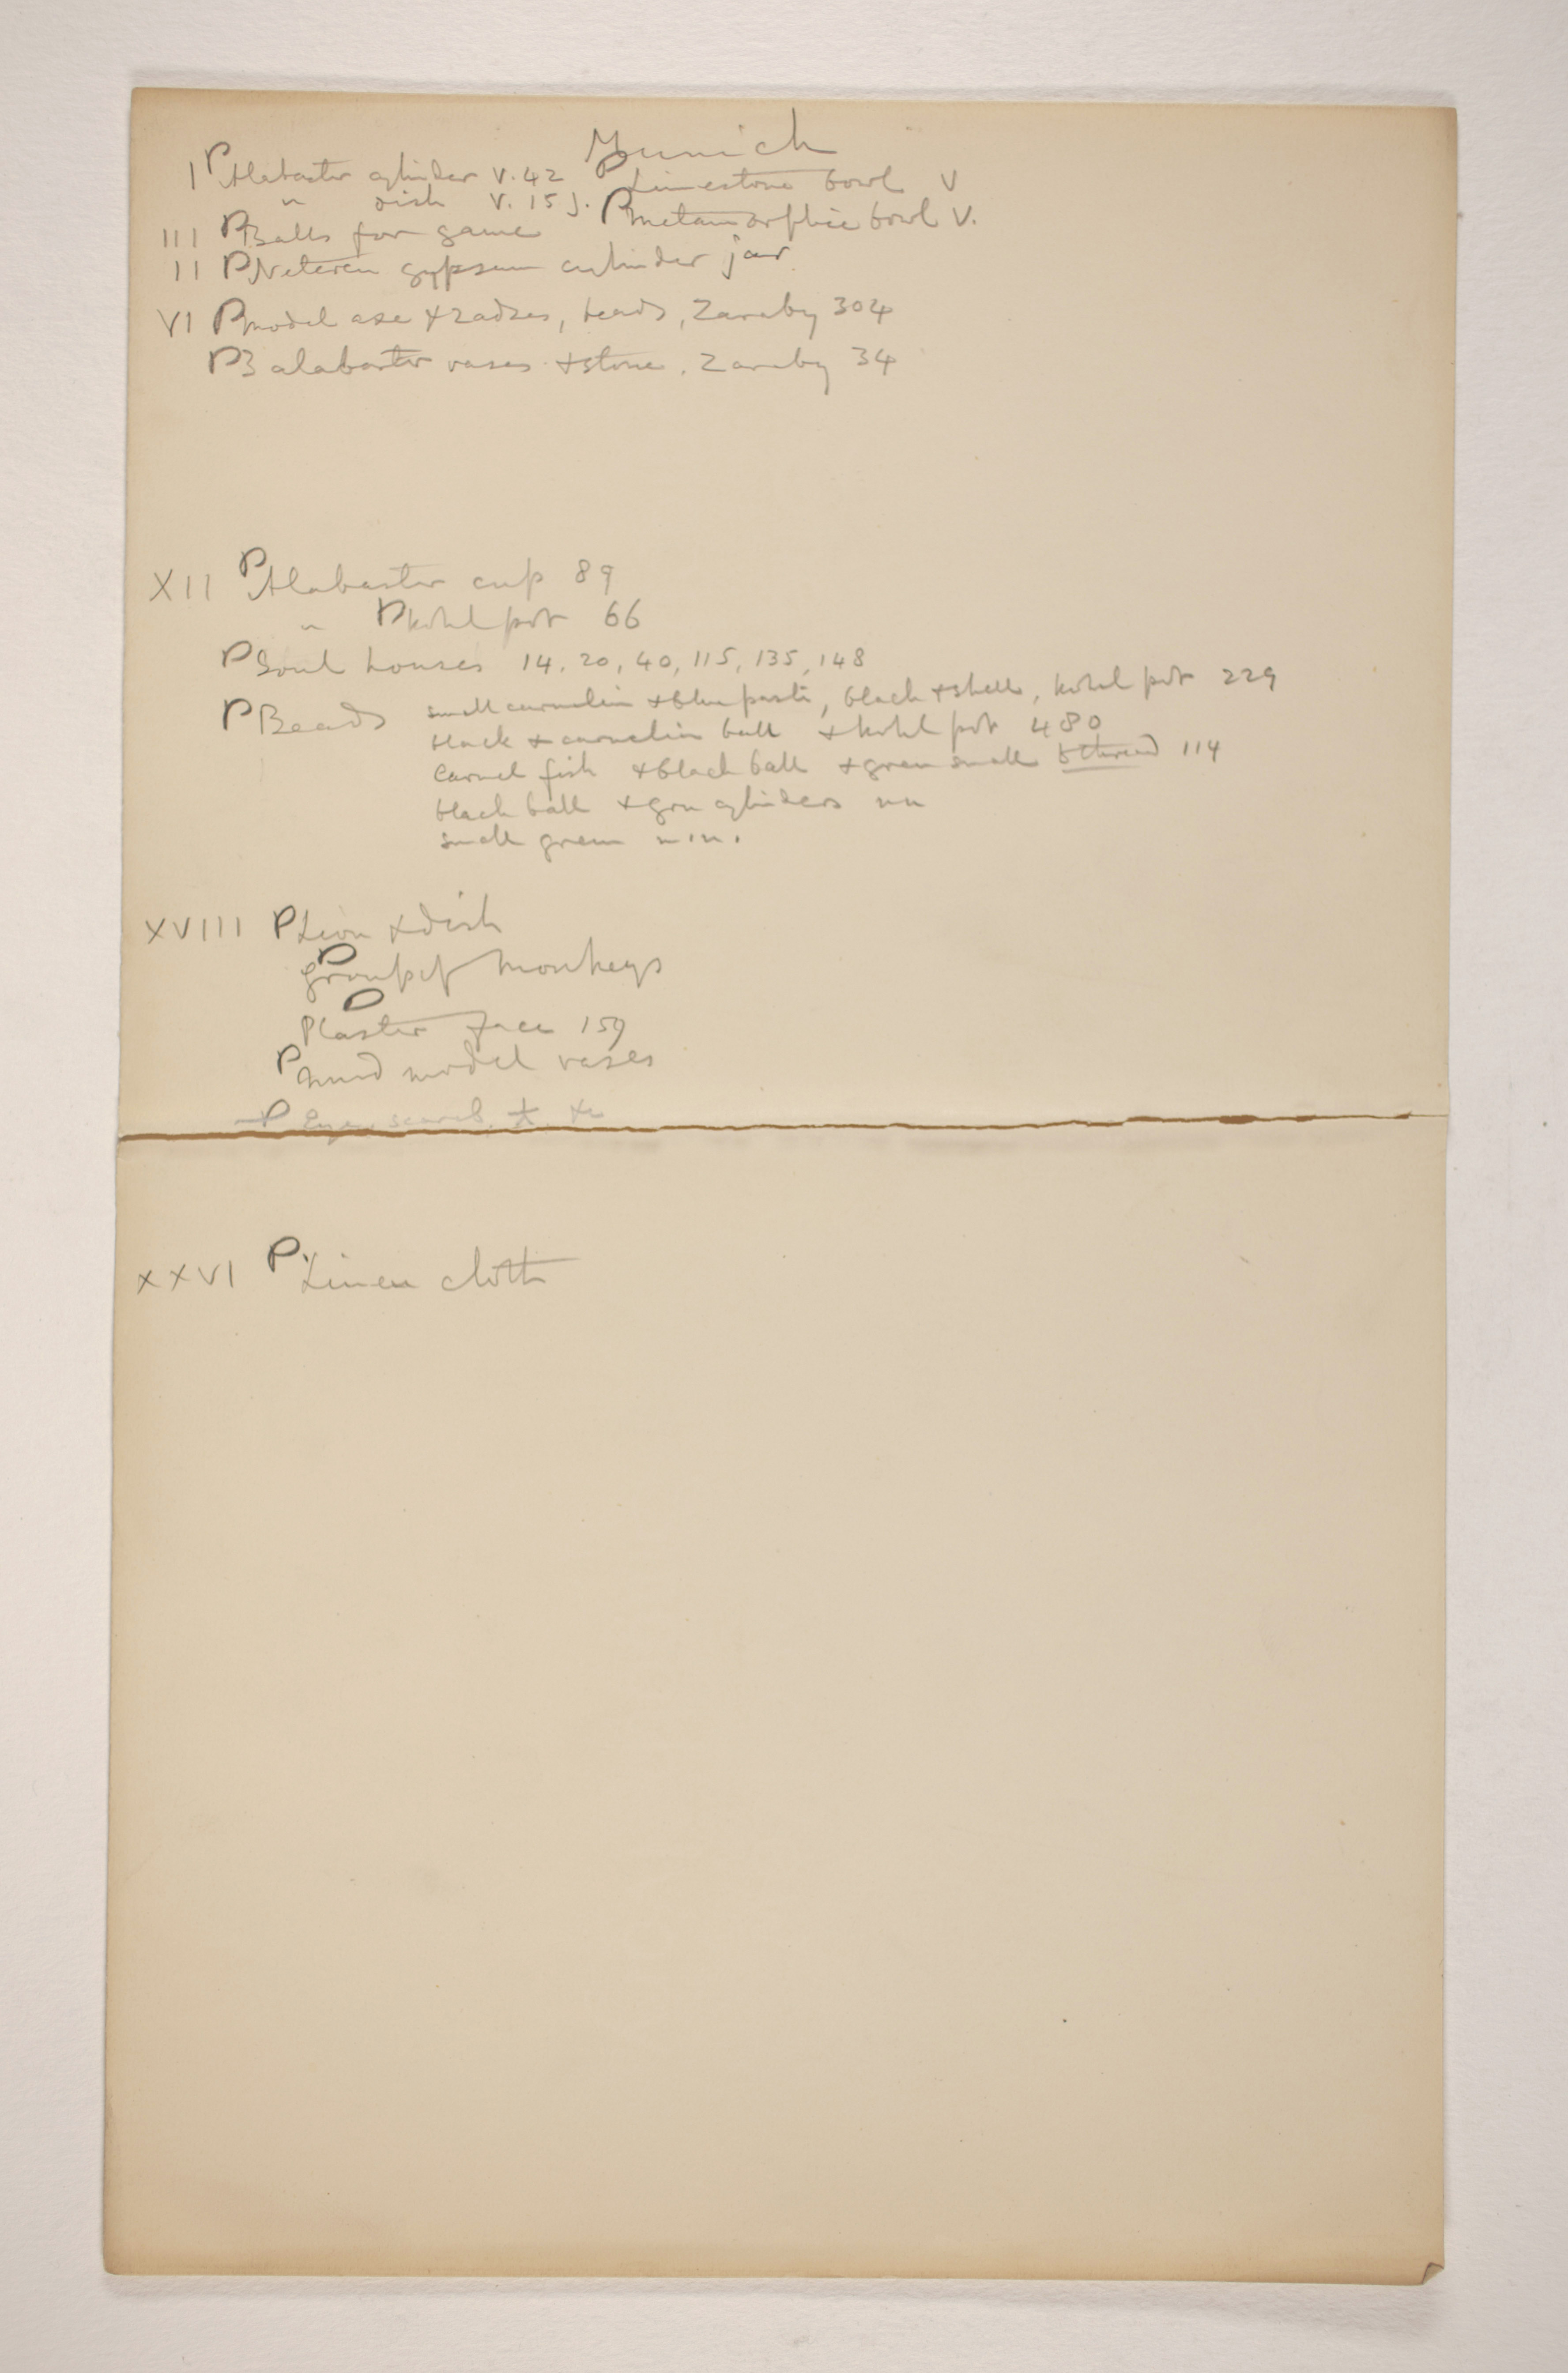 Munich
I P Alabaster cylinder V. 42 P Limestone bowl V
" dish V. 15 j. P metamorphic bowl V.
III P Balls for game
II P Neteren gypsum cylinder jar
VI P model axe + 2 adzes, beads, Zaraby 304
P 3 alabaster vases + stone, Zaraby 34
XII P Alabaster cup 89
" P kohl pot 66
P Soul houses 14. 20, 40, 115, 135, 148
P Beads small carnelian + blue paste, black + shell, kohl pot 229
black + carnelian ball + kohl pot 480
Carnel fish + black ball + green small 114
black ball + grn cylinders
small green
XVIII P Lion + dish
P Group of monkeys
P Plaster face 159
P mud model vases
P scarab
XXVI P Linen cloth